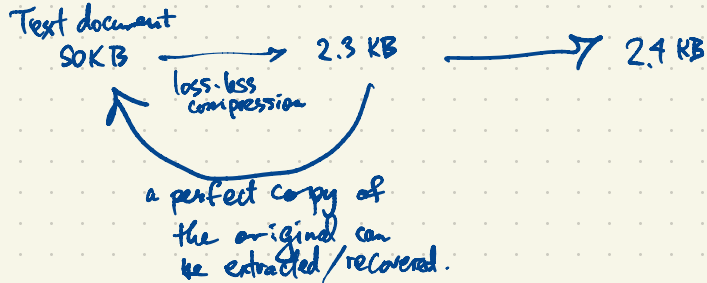 Text document
50KB → 2.3 KB → 2.4 KB
loss-less
compression
a perfect copy of
the original can
be extracted/recovered.